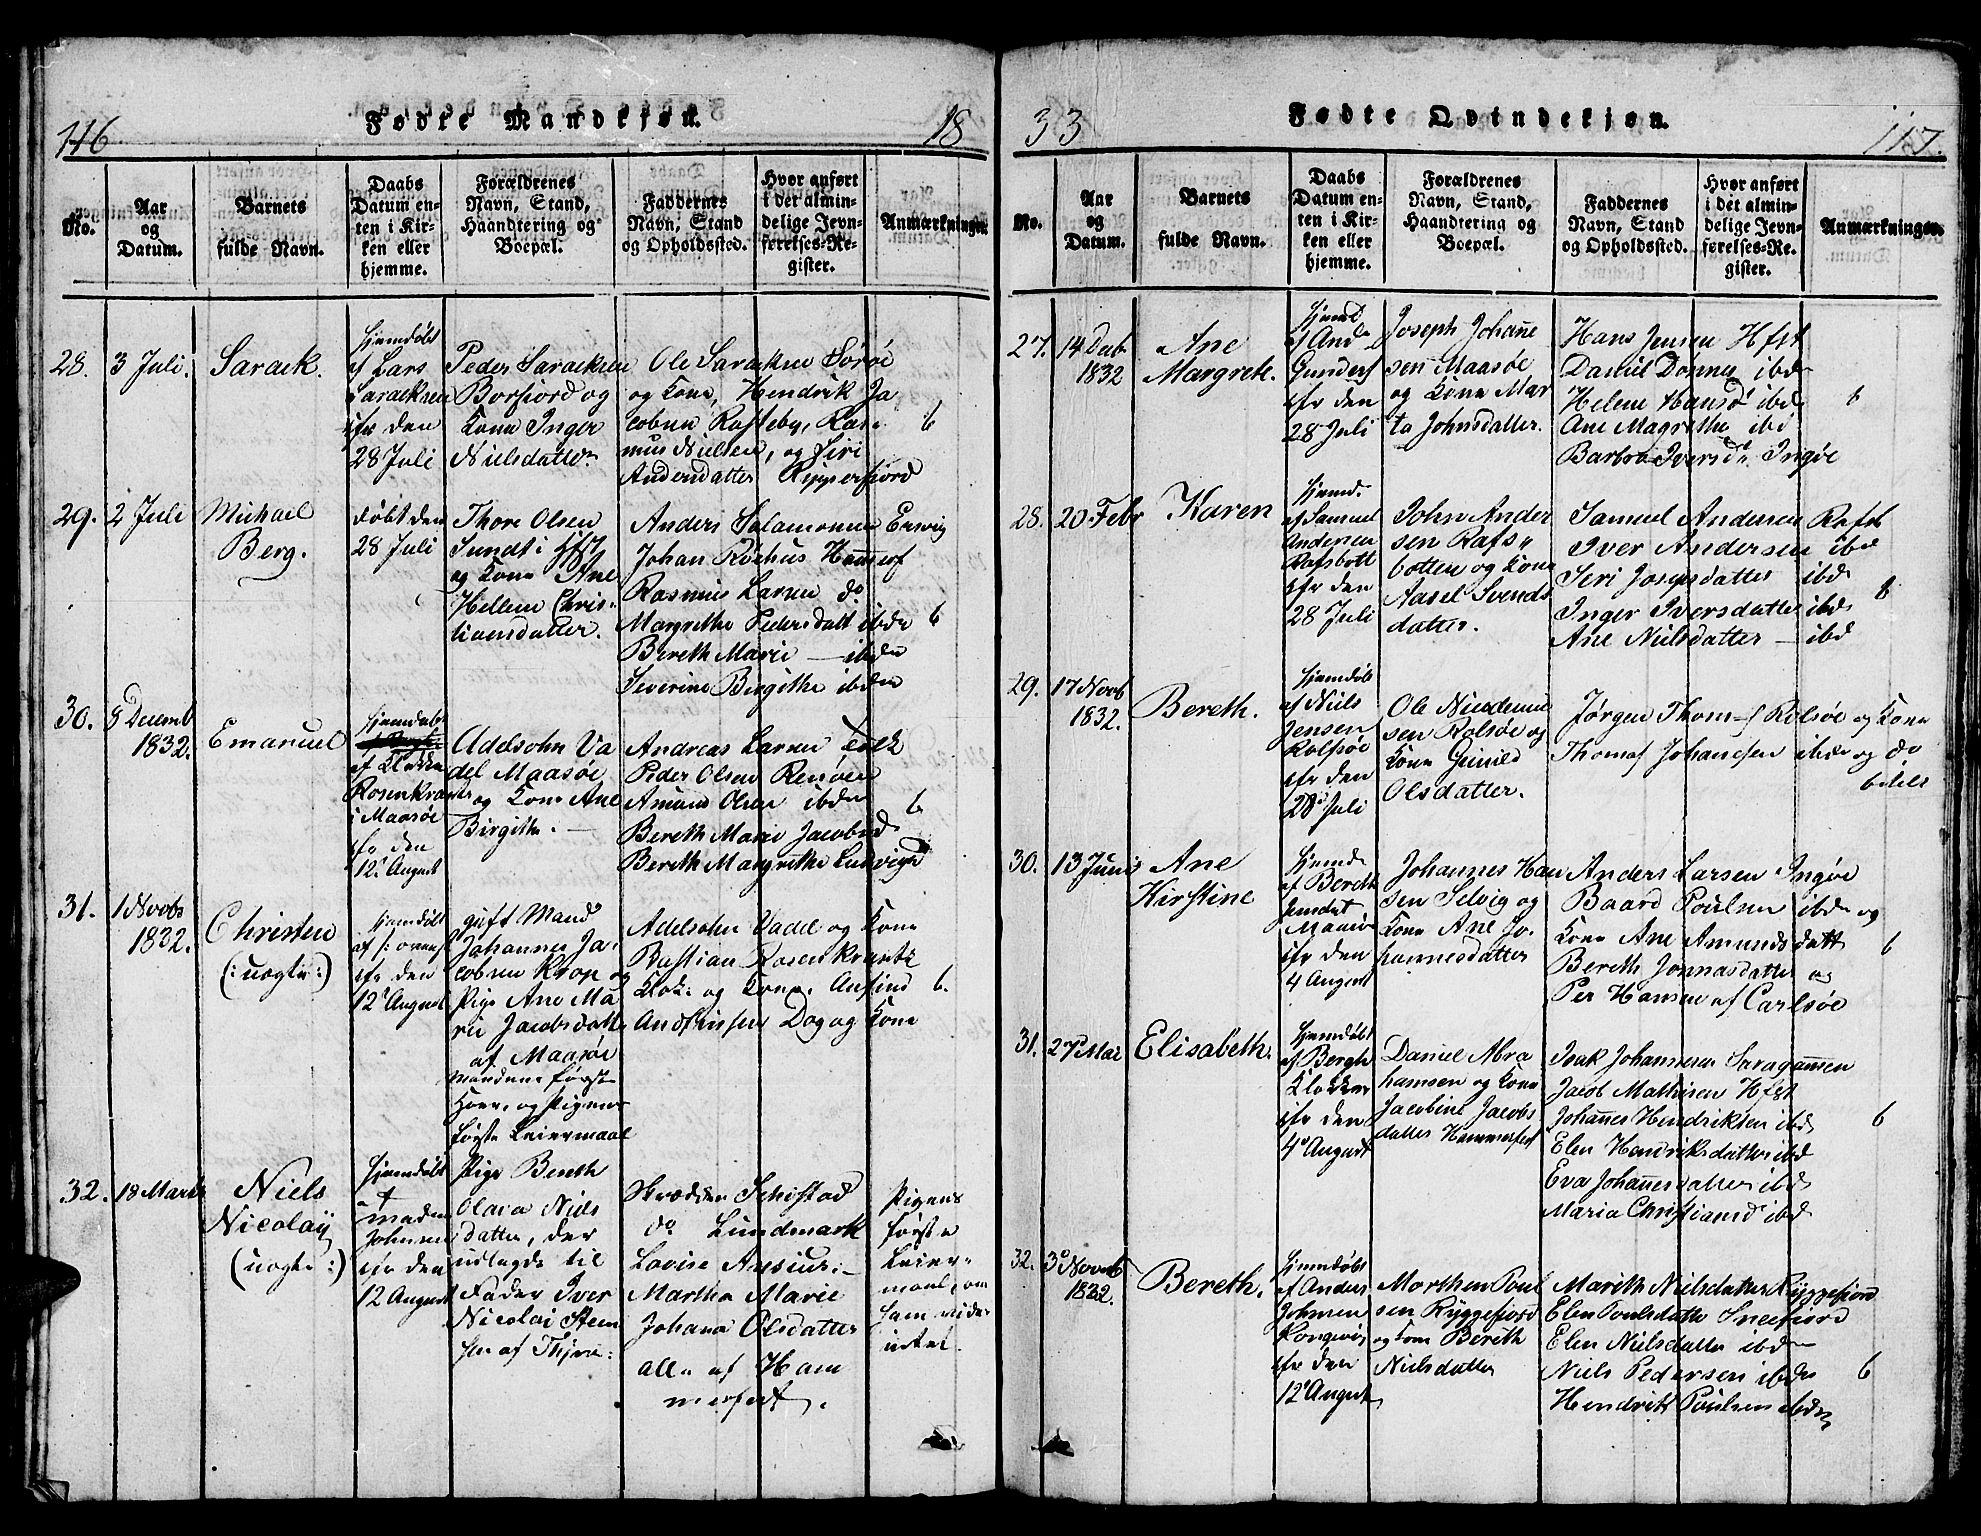 116
Fødte Mandkjøn.
18
No.
Aar
og
Datum.
Barnets
fulde Navn.
Daabs
Datum en-
ten i Kir-
ken eller
hjemme.
Forældrenes
Navn, Stand,
Haandtering og
Boepæl.
Faddernes
Navn, Stand
og Opholdssted.
Hvor anført
i det almin-
delige Jevn-
førelses-Re-
gister.
Anmærkninger.
28.
3 Juli.
Sarack.
Hjemdøbt
af Lars
Saracksen
ifr den
28 Juli
Peder Saracksen
Borfiord og
Kone Inger
Nielsdatter
Ole Saracksen Sørøe
og Kone, Hendrik Ja
cobsen Rafsteby, Ras-
mus Nielsen, og Siri
Andersdatter Ripperfiord
6
29.
2 Juli
Michael
Berg.
døbt den
28 Juli
Thore Olsen
Sundt i Hfst
og Kone Ane
Hellene Chris-
tiansdatter.
Anders Salamonsen
Johan Rochus Hammerf
Rasmus Larsen do
Margrethe Pedersdatt ibdn
Bereth Marie — ibdn
Severine Birgithe ibdn
6
30.
8 Decemb
1832.
Emanuel
Hjemdøbt
af Klokker
Rosenkrantz
i Maasøe
ifr den
12 August
Adelsohn Va
del Maasøe
og Kone Ane
Birgithe. —
Andreas Larsen
Peder Olsen Renøen
Amund Olsen ibdn
Bereth Marie Jacobsd
Bereth Margrethe Ludvigsd
6
31.
1 Novbr
1832.
Christen
(: uegte :)
Hjemdøbt
af f: ovenf
ifr den
12 August
gift Mand
Johannes Ja-
cobsen Krop og
Pige Ane Ma
rie Jacobsdatt
af Maasøe
Mandens første
Hoer, og Pigens
første Leiermaal
Adelsohn Vadel og Kone
Bastian Rosenkrantz
Klok: og Kone. Anfind
Andfinsen Dog og Kone
6.
32.
18 Marts
Niels
Nicolay
(: uegte :)
Hjemdøbt
af
Johnsen
ifr den
12 August
Pige Bereth
Olava Niels
datter, der
udlagde til
Fader Iver
Nicolai Steen
sen af
Skrædder Schistad
do Lundmark
Lovise
Martha Marie
Johana Olsdatter
alle af Ham
merfest.
Pigens
første
Leier-
maal, om
ham vides
intet.
33
Fødte Qvindekjøn.
117.
No.
Aar
og
Datum.
Barnets
fulde Navn.
Daabs
Datum en-
ten i Kir-
ken eller
hjemme.
Forældrenes
Navn, Stand,
Haandtering og
Boepæl.
Faddernes
Navn, Stand
og Opholdssted.
Hvor anført
i det almin-
delige Jevn-
førelses-Re-
gister.
Anmærkninger.
27.
14 Deb
1832
Ane
Margreth.
Hjemd
af And
Gunders
ifr den
28 Juli
Joseph Johañe
sen Maasøe
og Kone Mar
ta Johnsdatter.
Hans Jensen Hfst
Daniel Dønnes ibdn
Helene Hansd ibd
Ane Magrethe ibd
Barbro Iversdr Ingøe
6
28.
20 Febr
Karen
Hjemd.
af Samuel
Andersen
Rafsbott
ifr den
28 Juli
John Ander
sen Rafs„
botten og Kone
Aasel Svends
datter.
Samuel Andersen Rafsb
Iver Andersen ibd
Seri Josepsdatter ibd
Inger Iversdatter ibd
Ane Nielsdatter — ibd
8
29.
17 Novb
1832.
Bereth.
Hjemdøb
af Niels
Jensen
Rolfsøe
ifr den
28 Juli
Ole Nicodemu
sen Rolsøe og
Kone Gunild
Olsdatter.
Jørgen Thoms Rolsøe og Kone
Thomas Johansen ibdn og do
6
30.
13 Junis
Ane
Kirstine
Hjemd
af Bereth
Jensdat
Maasø
ifr den
4 August
Johannes Han
sen Selvig og
Kone Ane Jo-
hannesdatter
Anders Larsen Ingøe
Baard Poulsen ibdn og
Kone Ane Amundsdatt
Bereth Jonnasdatter og
Per Hansen af Carlsøe
6
31.
27 Mai
Elisabeth.
Hjemdøbt
af Bergh
Klokker
ifr den
4 August
Daniel Abra
hamsen og Kone
Jacobine Jacobs
datter Hammerfest
Isak Johannesen Saragammen
Jacob Mathisen Hfst
Johañes Hendriksen ibd
Elen Hendriksdatter ibd
Eva Johañesdatter ibd
Maria Christiansd ibd
6
32.
3 Novemb
1832.
Bereth.
Hjemdøbt
af Anders
Johnsen
Kongsvig
ifr den
12 August
Morthen Poul
sen Ryggefiord
og Kone Bereth
Nielsdatter
Marith Nielsdatter Ryggefiord
Elen Poulsdatter Sneefiord
Elen Nielsdatter ibdn
Niels Pedersen ibdn
Hendrik Poulsen ibdn
6